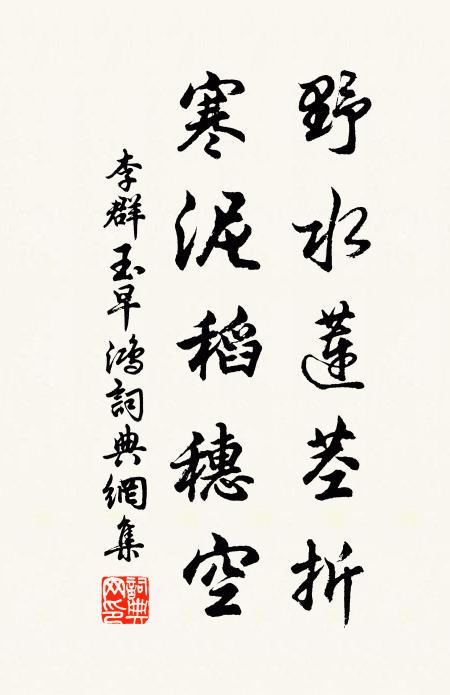 野水蓮莖折
寒泥稻穗空
李群玉早鴻詞典網集
詞典網印